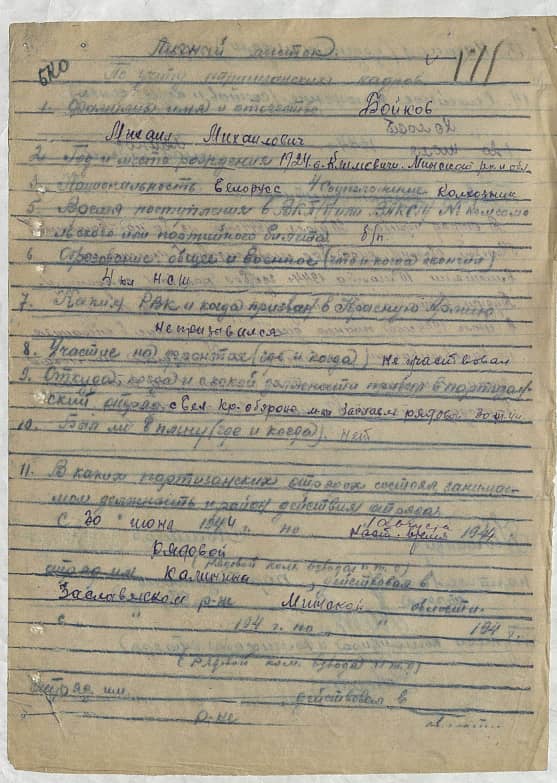 Личный листок
БКО
По учету партизанских кадров
1. Фамилия имя и отчество Бойков
Михаил Михайлович
2. Год и место рождения 1924 д. Климовичи. Минской р-н и обл.
3. Национальность белорус 4 Соцположение колхозник
5. Время поступления в ВКП/б/ или ВЛКСМ № комсомо
льского или партийного билета б/п
6. Образование: общее и военное (что и когда окончил)
4 кл НСШ
7. Каким РВК и когда призван в Красную Армию
непризывался
8. Участие на фронтах (где и когда) не участвовал
9. Откуда, когда и с какой должности прибыл в партизан-
ский отряд с рядовой
10. Был ли в плену (где и когда). нет
11. В каких партизанских отрядах состоял занимае-
мая должность и район действия отряда
С 30 " июня 1944 г. по наст. время 1944
рядовой
(рядовой ком. взвода и т. д)
отряд им Калинина, действовал в
Заславльском р-не Минской области.
С " " 194 г. по " " 194 г.
(рядовой ком. взвода и т. д)
отряд им. , действовал в
" р-не области